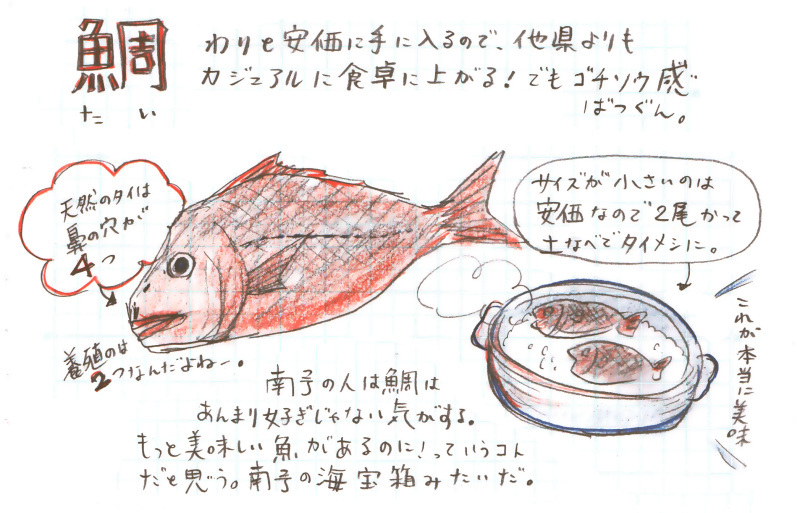 鯛
たい
わりと安価に手に入るので、他県よりも
カジュアルに食卓に上がる！でもゴチソウ感
ばつぐん。
天然のタイは
鼻の穴が
4つ
養殖のは
2つなんだよねー。
サイズが小さいのは
安価なので2尾かって
土なべでタイメシに。
これが本当に美味
南予の人は鯛は
あんまり好きじゃない気がする。
もっと美味しい魚があるのに！っていうコト
だと思う。南予の海宝箱みたいだ。